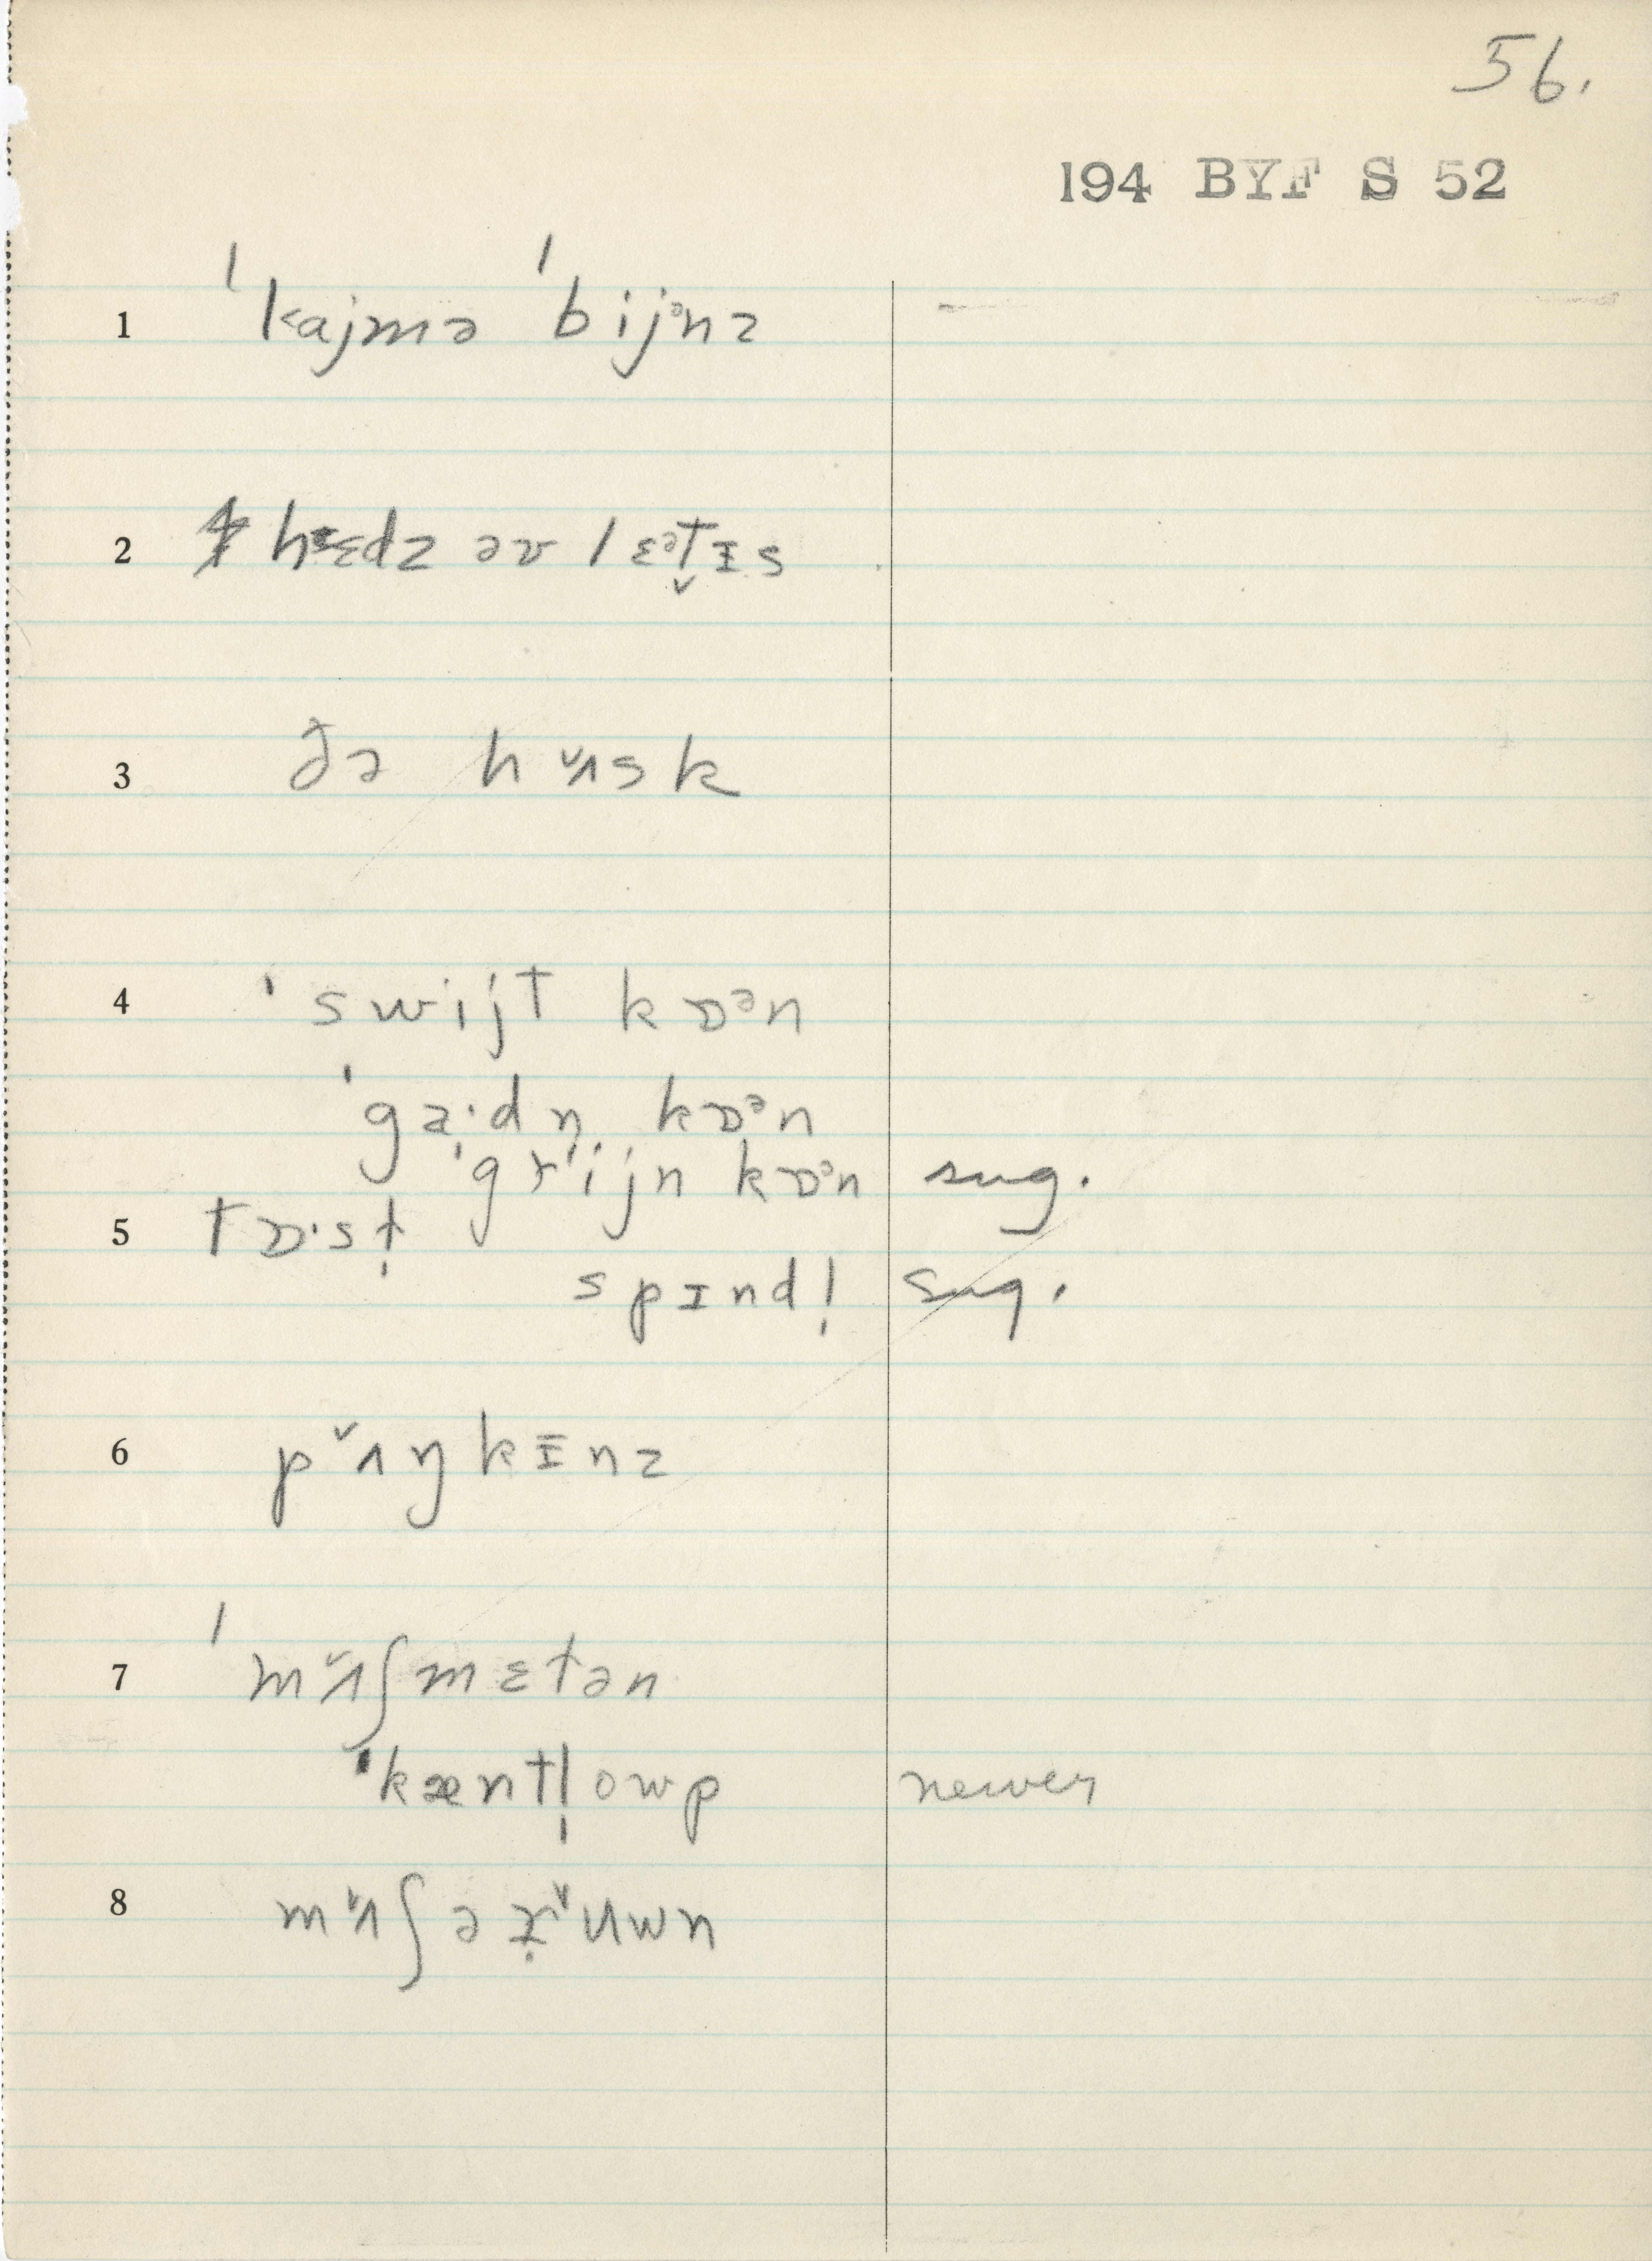 56.
194 BYF S 52
1 ˈkajmə ˈbijᵊnz
2 hɛdz əv lɛᵊt̬ɪs
3 ðə hʌ̌sk
4 ˈswijt kɒᵊn
ˈga̩·dn̩ kɒᵊn
ˈgrˇijn kɒᵊn sug.
5 tɒ·sl̩
spɪndl̩ sug.
6 pʌ̌ŋkɪ̄nz
7 ˈmʌ̌ʃmɛtən
ˈkæntl̩owp newer
8 mʌ̌ʃə ɪ̣rˇuwn